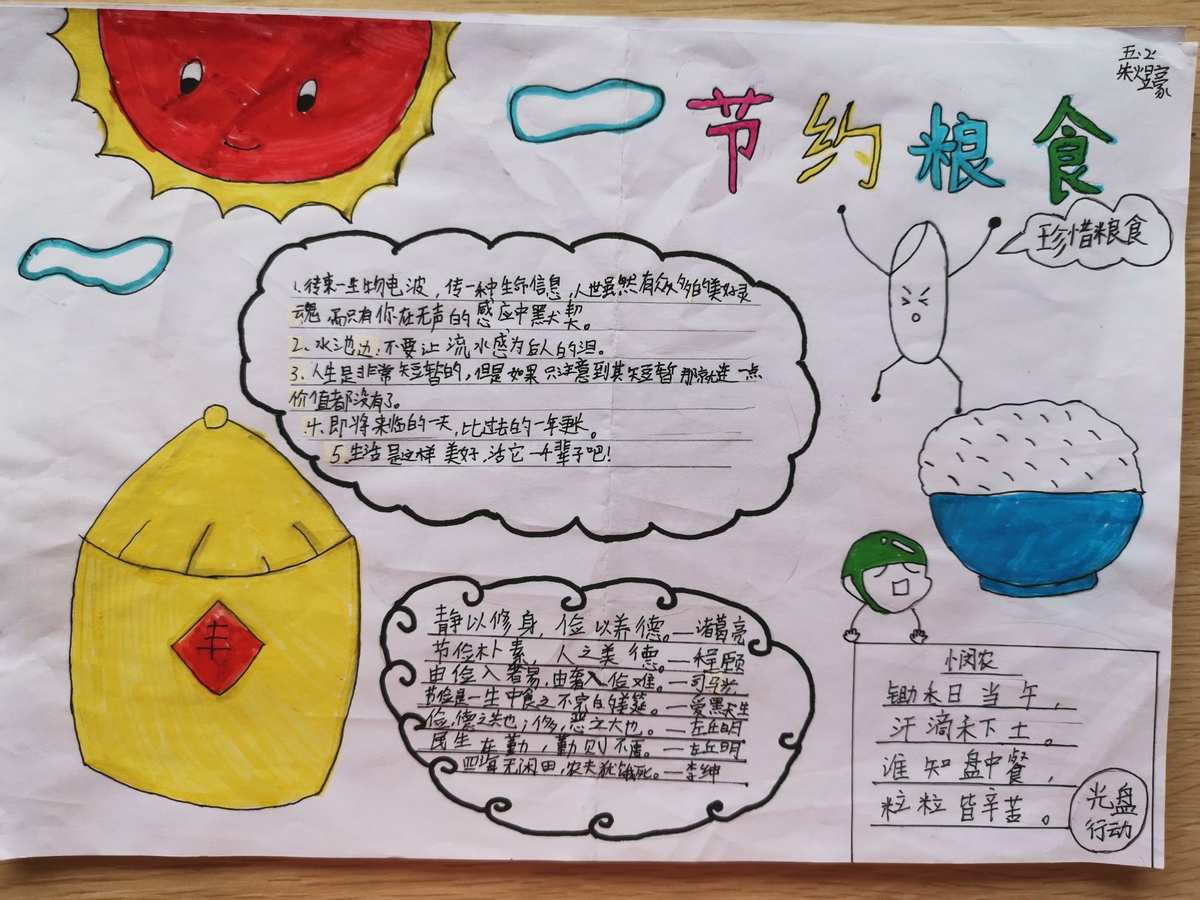 五.2
朱煜豪
节约粮食
珍惜粮食
1.待来一生物电波，传一种生命信息，人世虽然有众多的美好灵
魂，而只有你在无声的感应中默契。
2、水池边：不要让流水感为后人的泪。
3、人生是非常短暂的，但是如果只注意到其短暂那就连一点
价值都没有了。
4、即将来临的一天，比过去的一年更长。
5、生活是这样美好，活它一千辈子吧！
丰
静以修身，俭以养德。—诸葛亮
节俭朴素 人之美德。—程颐
由俭入奢易，由奢入俭难。—司马光
节俭是一生中食之不完的筵筵。—爱默生
俭，德之共也；侈，恶之大也。—左丘明
民生在勤，勤则不匮。—左丘明
四海无闲田，农夫犹饿死。—李绅
悯农
锄禾日当午，
汗滴禾下土。
谁知盘中餐，
粒粒皆辛苦。
光盘
行动